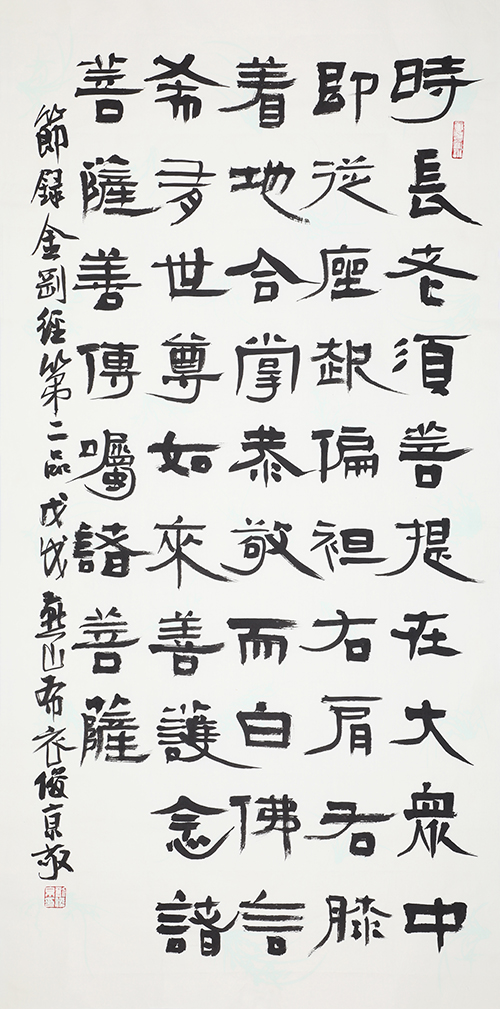 時長老須菩提在大衆中
即從座起偏袒右肩右膝
着地合掌恭敬而白佛言
希有世尊如來善護念諸
菩薩善傳囑諸菩薩
節録金剛經第二品戊戌燕山布衣俊京敬